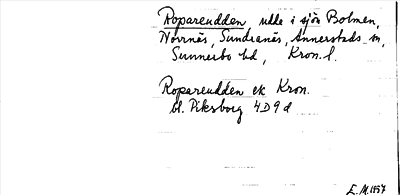 Ropareudden udde i sjön Bolmen,
Norrnäs, Sundranäs, Annerstads sn,
Sunnerbo hd, Kron. l.
Ropareudden ek Kron.
bl. Piksborg 4D9d
E. M. 1957